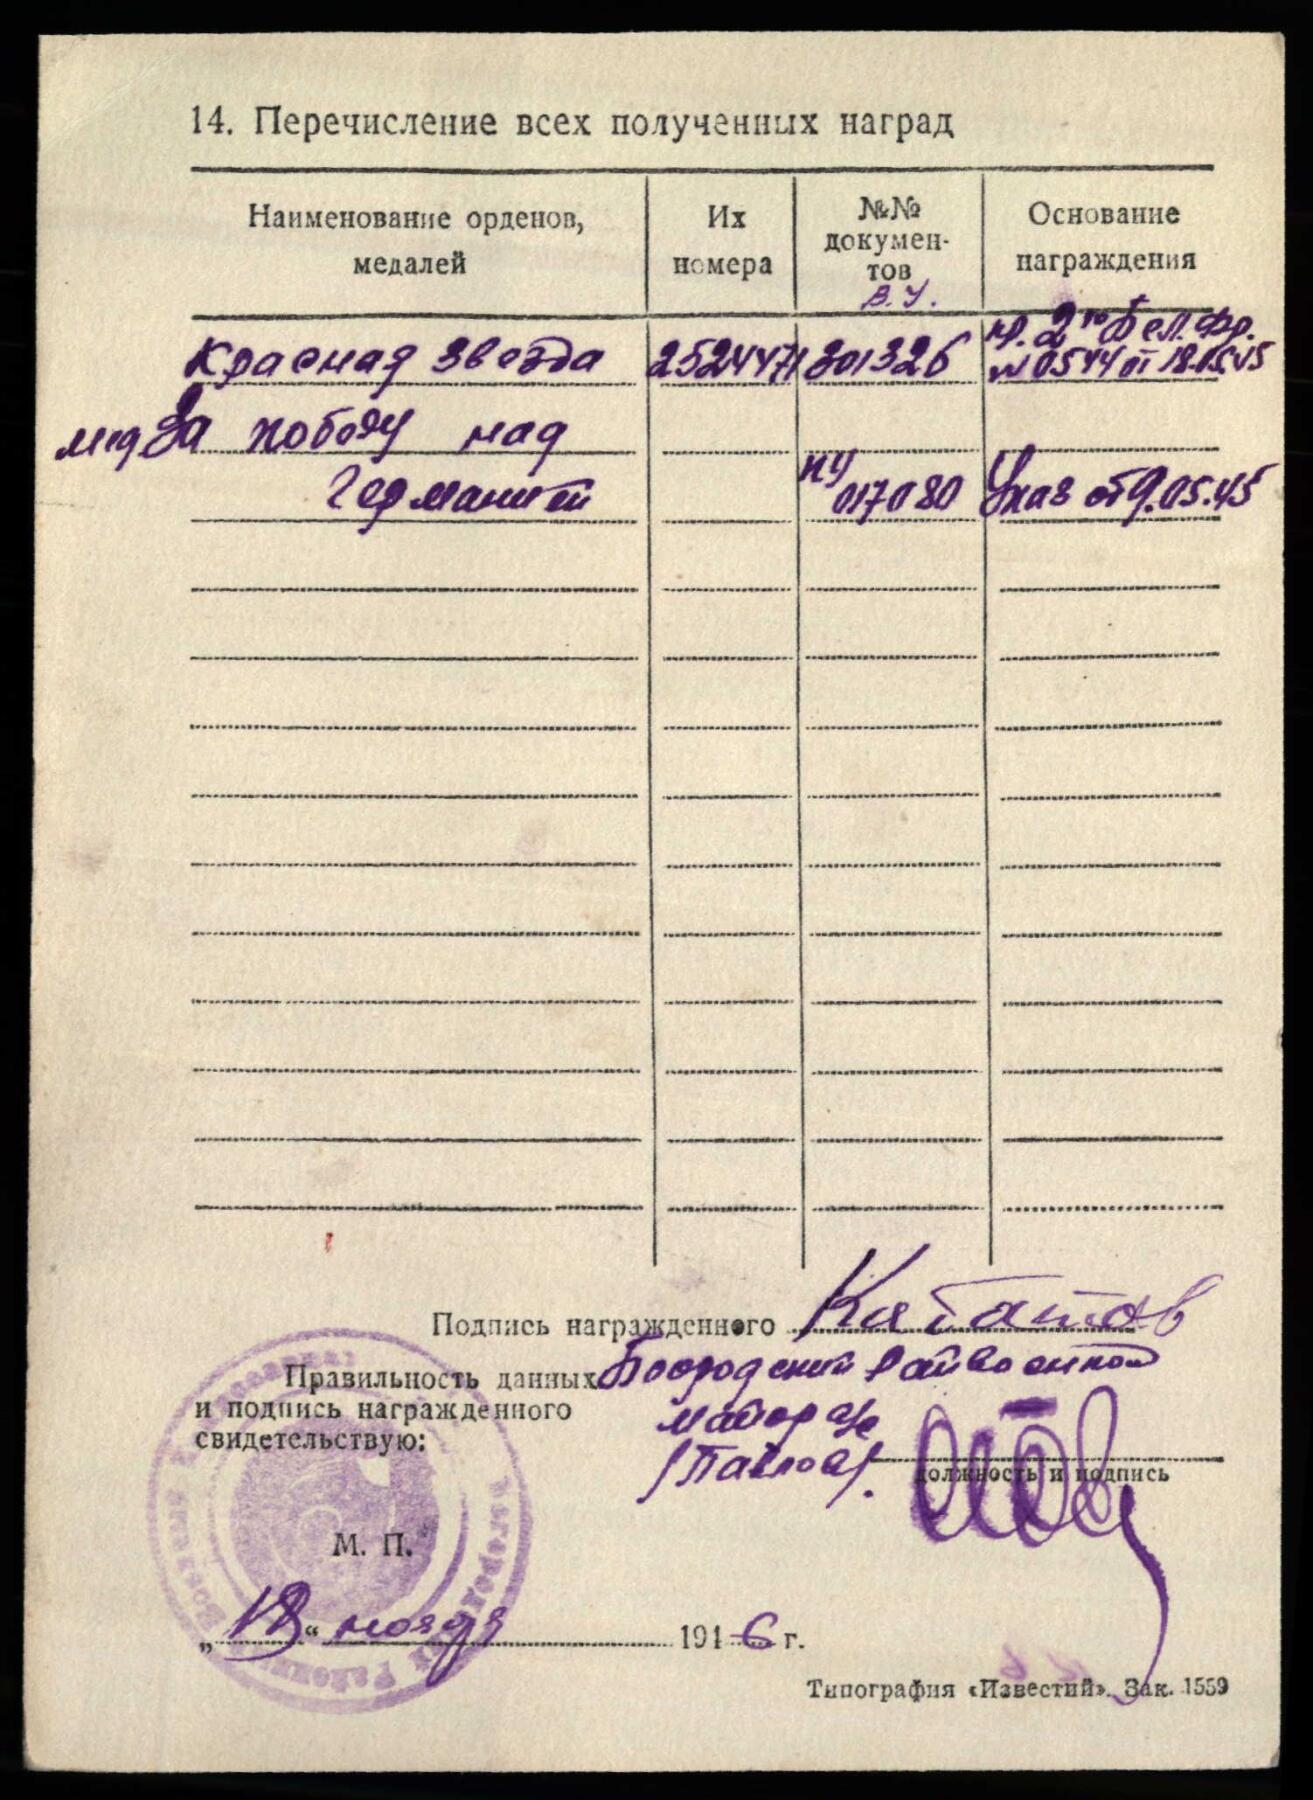 14. Перечисление всех полученных наград
Наименование орденов, медалей
Их номера
№№ документов
В. У.
Основание награждения
Красная звезда 2524471 301326 пр. 2го Бел. Фр.
№ 0544 от 18.05.45
мед За победу над
Германией НУ 017080 Указ от 9.05.45
Подпись награжденного Кататов
Правильность данных
и подпись награжденного
свидетельствую:
Богородский Райвоенком
майор а/с
/Павлов/.
должность и подпись
М. П.
„18“ ноября 1946 г.
Типография «Известий». Зак. 1559